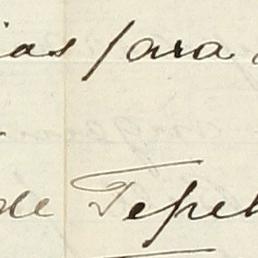 ias para
de Tepe